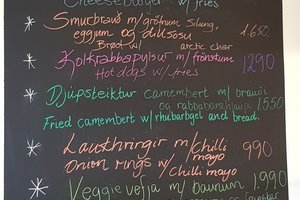 Cheeseburger w/fries
Smurbrauð m/gröfnum silung,
eggjum og dillsósu 1.650.
Bread w/ arctic char
Kolkrabbapylsur m/frönskum 1290
Hot dogs w/ fries
Djúpsteiktur camembert m/brauði
og rabbabarahlaupi 1550
Fried camembert w/rhubarbgel and bread.
Laukhringir m/chilli
mayo 990
Onion rings w/chilli
mayo
Veggie vefja m/baunum 1.990